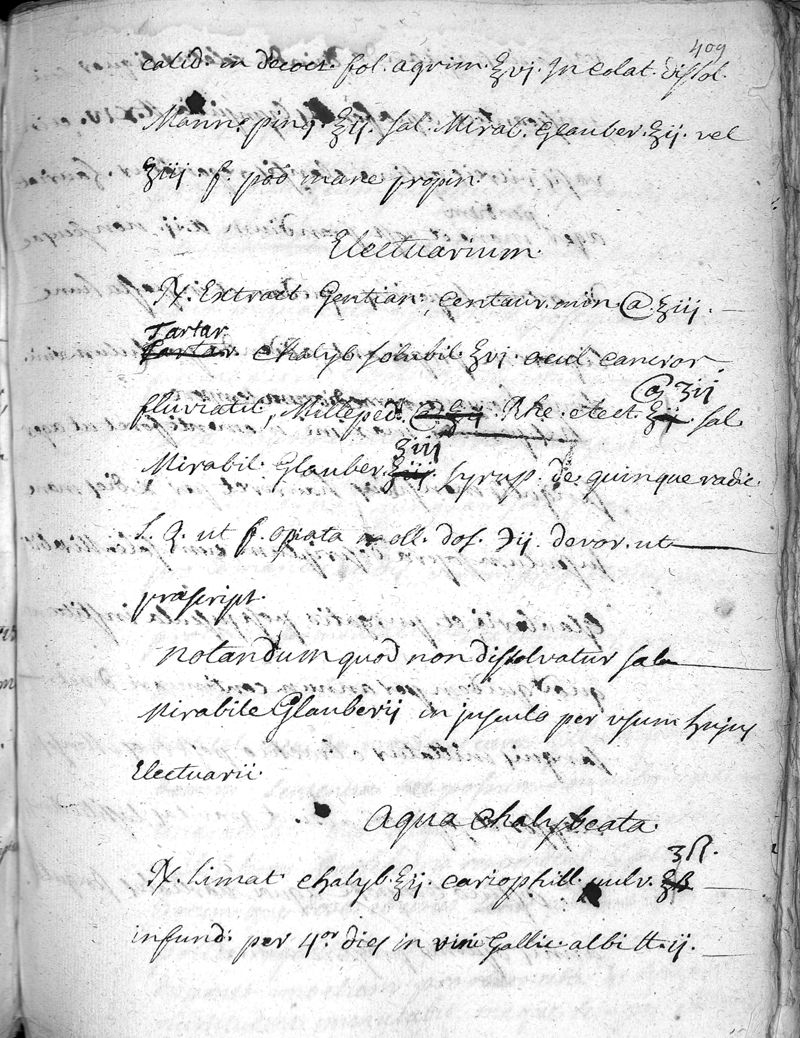 409
calid in decoct. fol. agrim. ℥vj. in colat. dissol.
Mannæ ping. ℥ij. sal. Mirab. Glauber. ʒij. vel
ʒiij f. po͞o mane propin.
Electuarium
℞. Extract. Gentian: centaur. min. @ ʒiij.
Tartar
Tartar. chalyb. solubil. ʒvj. ocul. cancror.
@ ʒij
fluviatil, Milleped. @ ʒij Rhe. elect. ʒij sal.
ʒiij
Mirabil. Glauber. ʒiij. syrup. de quinque radic.
S. Q. ut f. opiata moll. dos. ℈ij. devor. ut
præscript.
notandum quod non dissolvatur sal
Mirabile Glauberij in juscula per usum hujus
Electuarii.
Aqua Chalybeata
ʒß.
℞. Limat chalyb. ℥ij. cariophill. pulv. ʒß
infund: per 4or dies in vini Gallic. albi ℔. ij.